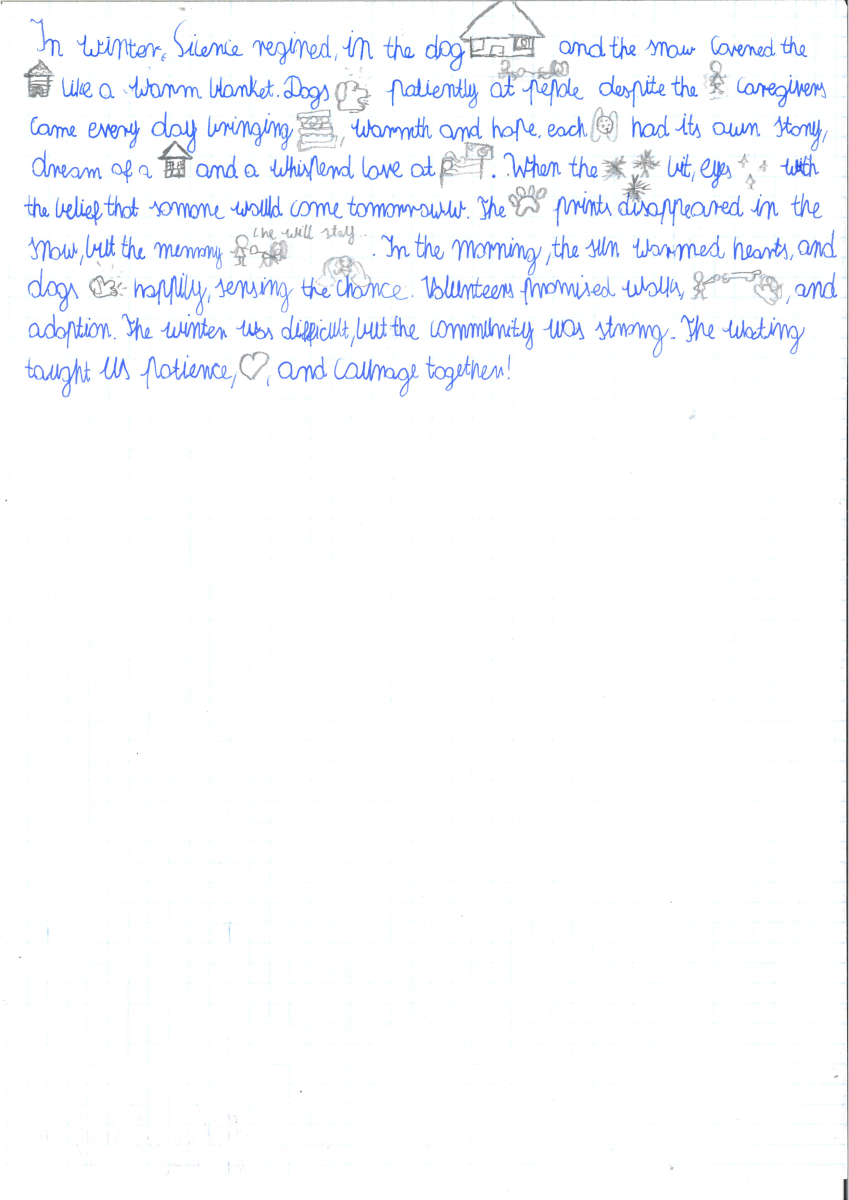 In winter, Silence regined, in the dog and the snow covered the
like a warm blanket. Dogs patiently at pepole despite the caregivers
came every day bringing , warmth and hope. each had its own story,
dream of a and a whisperd love at . When the bit, eyes with
the belief that somone would come tomorrowW. The prints disappeared in the
the will stay...
snow, but the memory . In the morning, the sun warmed hearts, and
dogs happily, sensing the chance. Volunteers promised walks, , and
adoption. The winter was difficult, but the community was strong. The wating
taught us patience, , and courage together!